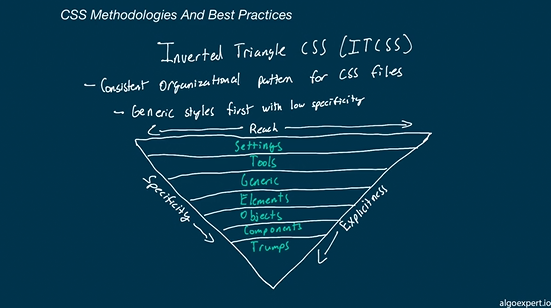 CSS Methodologies And Best Practices
Inverted Triangle CSS (ITCSS)
- Consistent organizational pattern for CSS files
- Generic styles first with low specificity
Reach
Settings
Tools
Generic
Elements
Objects
Components
Trumps
Specificity
Explicitness
algoexpert.io